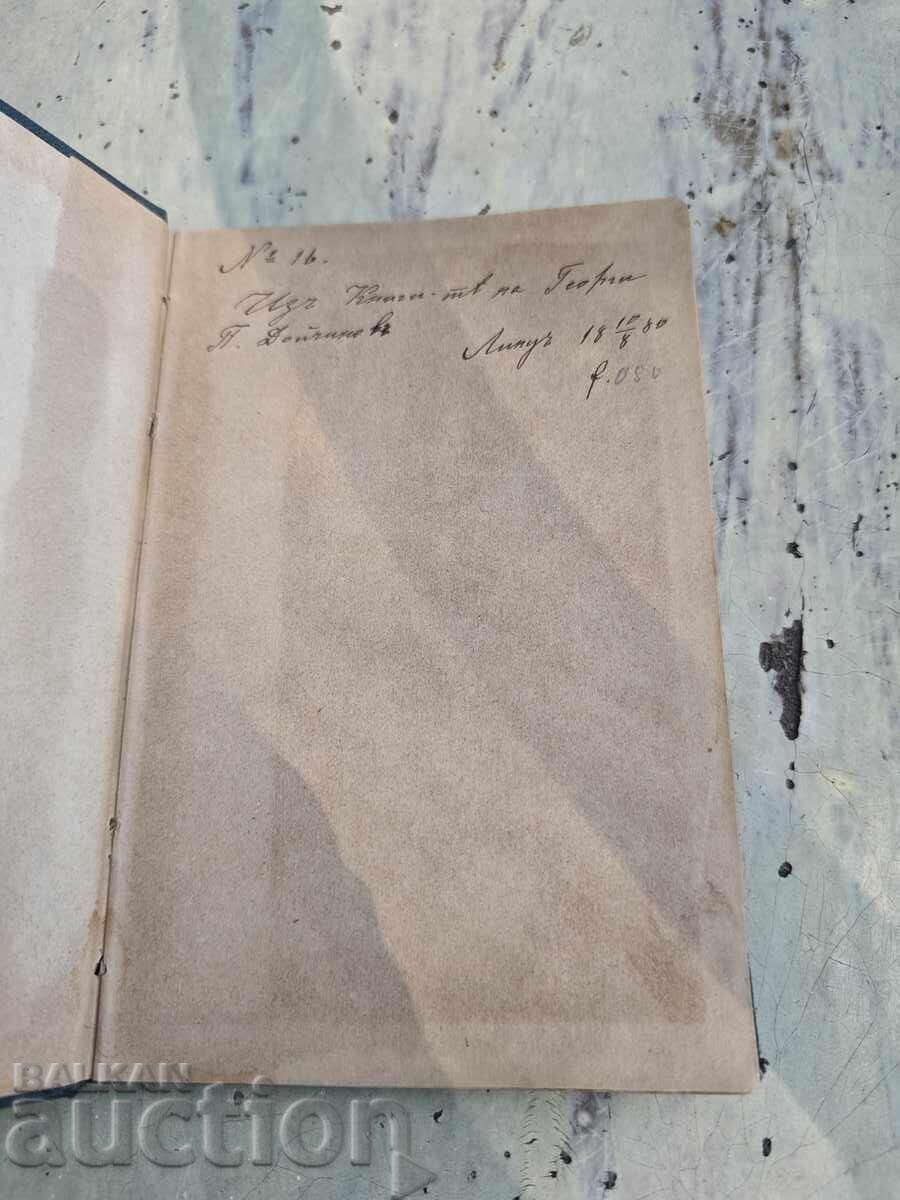 № 16.
Изъ Книги-тѣ на Георги
П. Дойчиновъ
Линцъ 18 10/8 80
080
BALKAN
auction